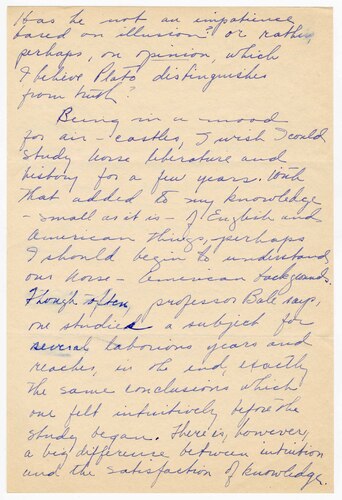 Has he not an impatience
based on illusion? or rather,
perhaps, on opinion, which
I believe Plato distinguishes
from truth?
Being in a mood
for air-castles, I wish I could
study Norse literature and
history for a few years. With
that added to my knowledge
- small as it is - of English and
American things, perhaps
I should begin to understand
our Norse-American backgrounds.
Though often, professor Bale says,
one studied a subject for
several laborious years and
reaches, in the end, exactly
the same conclusions which
one felt intuitively before the
study began. There is, however,
a big difference between intuition
and the satisfaction of knowledge.